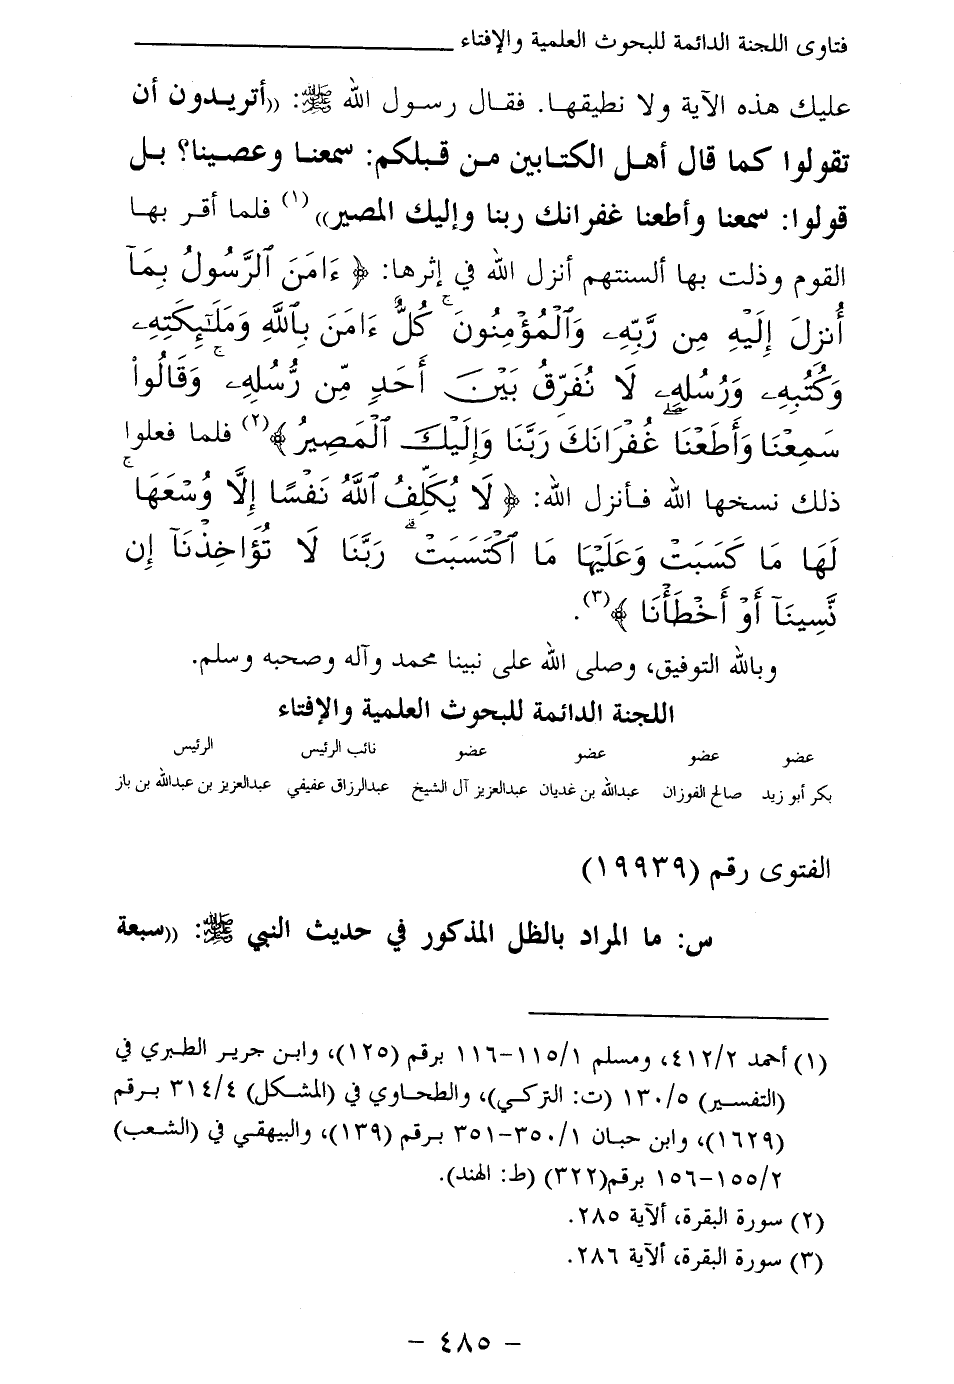 فتاوى اللجنة الدائمة للبحوث العلمية والإفتاء
عليك هذه الآية ولا نطيقها. فقال رسول الله ﷺ: ((أتريدون أن
تقولوا كما قال أهل الكتابين من قبلكم: سمعنا وعصينا؟ بل
قولوا: سمعنا وأطعنا غفرانك ربنا وإليك المصير))(١) فلما أقر بها
القوم وذلت بها ألسنتهم أنزل الله في إثرها: ﴿ ءَامَنَ ٱلرَّسُولُ بِمَآ
أُنزِلَ إِلَيْهِ مِن رَّبِّهِۦ وَٱلْمُؤْمِنُونَ ۚ كُلٌّ ءَامَنَ بِٱللَّهِ وَمَلَـٰٓئِكَتِهِۦ
وَكُتُبِهِۦ وَرُسُلِهِۦ لَا نُفَرِّقُ بَيْنَ أَحَدٍ مِّن رُّسُلِهِۦ ۚ وَقَالُوا۟
سَمِعْنَا وَأَطَعْنَا ۖ غُفْرَانَكَ رَبَّنَا وَإِلَيْكَ ٱلْمَصِيرُ ﴾(٢) فلما فعلوا
ذلك نسخها الله فأنزل الله: ﴿ لَا يُكَلِّفُ ٱللَّهُ نَفْسًا إِلَّا وُسْعَهَا ۚ
لَهَا مَا كَسَبَتْ وَعَلَيْهَا مَا ٱكْتَسَبَتْ ۗ رَبَّنَا لَا تُؤَاخِذْنَآ إِن
نَّسِينَآ أَوْ أَخْطَأْنَا ﴾(٣).
وبالله التوفيق، وصلى الله على نبينا محمد وآله وصحبه وسلم.
اللجنة الدائمة للبحوث العلمية والإفتاء
عضو عضو عضو عضو نائب الرئيس الرئيس
بكر أبو زيد صالح الفوزان عبدالله بن غديان عبدالعزيز آل الشيخ عبدالرزاق عفيفي عبدالعزيز بن عبدالله بن باز
الفتوى رقم (١٩٩٣٩)
س: ما المراد بالظل المذكور في حديث النبي ﷺ: ((سبعة
(١) أحمد ٤١٢/٢، ومسلم ١١٥/١-١١٦ برقم (١٢٥)، وابن جرير الطبري في
(التفسير) ١٣٠/٥ (ت: التركي)، والطحاوي في (المشكل) ٣١٤/٤ برقم
(١٦٢٩)، وابن حبان ٣٥٠/١-٣٥١ برقم (١٣٩)، والبيهقي في (الشعب)
١٥٥/٢-١٥٦ برقم(٣٢٢) (ط: الهند).
(٢) سورة البقرة، ألآية ٢٨٥.
(٣) سورة البقرة، ألآية ٢٨٦.
- ٤٨٥ -